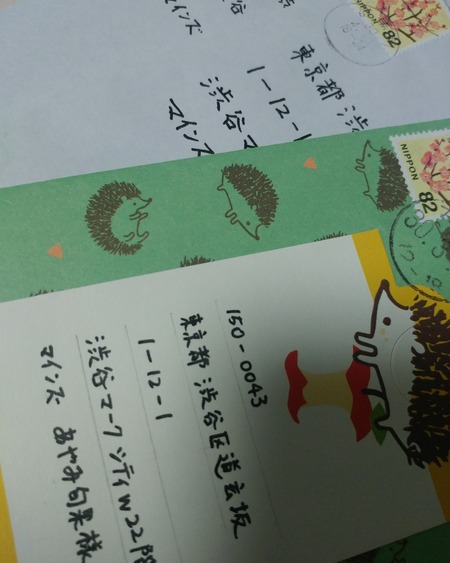 マインズ
谷
東京都渋
1-12-1
渋谷マ
マインズ
82
NIPPON
82
NIPPON
150-0043
東京都渋谷区道玄坂
1-12-1
渋谷マークシティW22階
マインズ あやみ旬果様